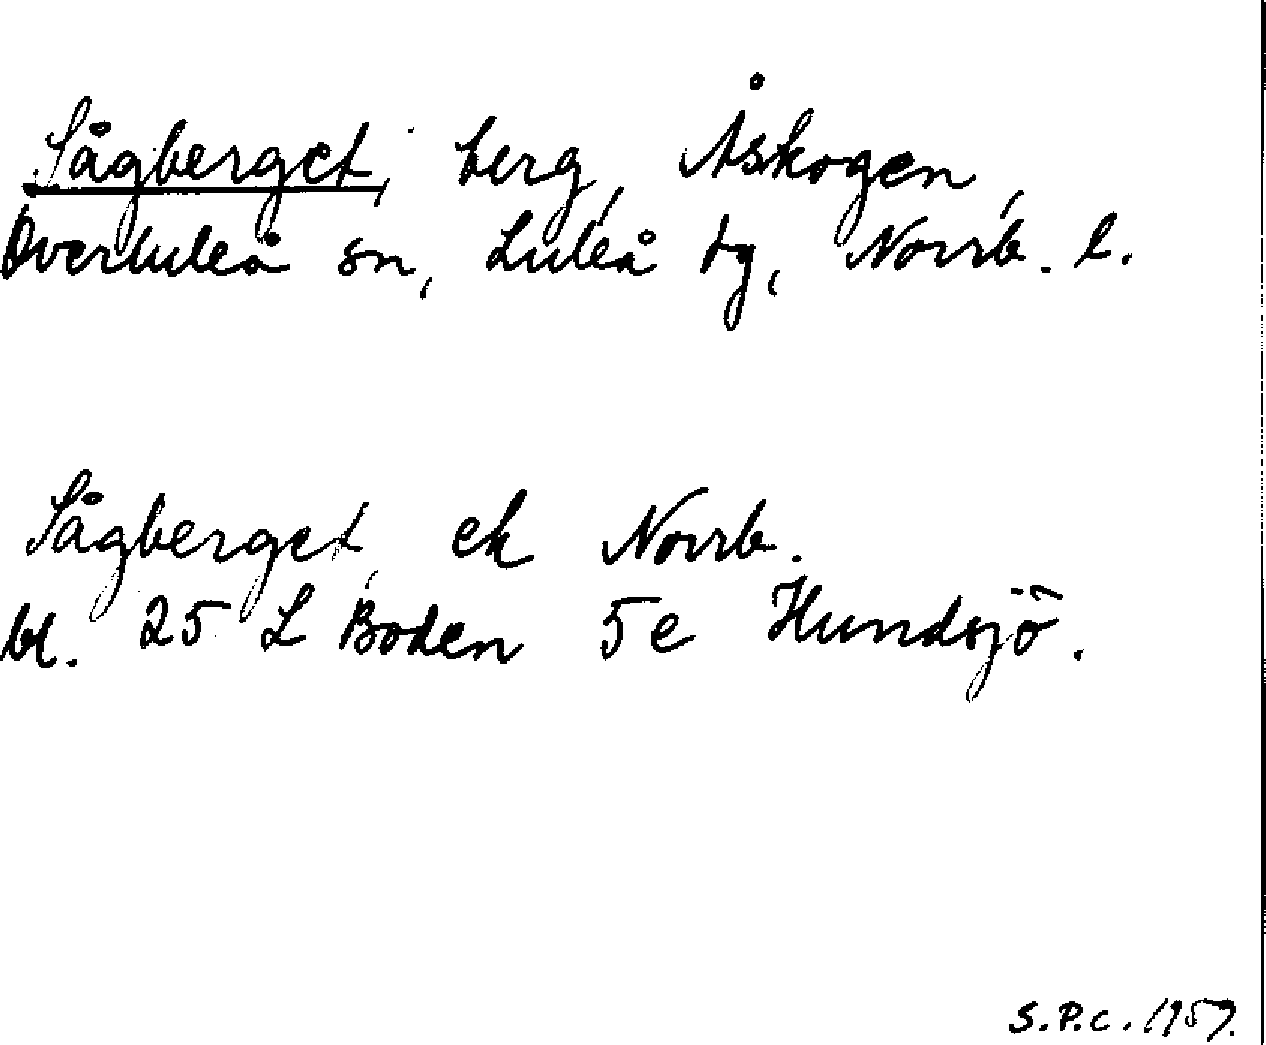 Sågberget, berg, Åskogen,
Överluleå sn, Luleå tg, Norrb. l.
Sågberget, ek Norrb.
bl. 25 L Boden 5e Hundsjö.
S.P.C. 1959.